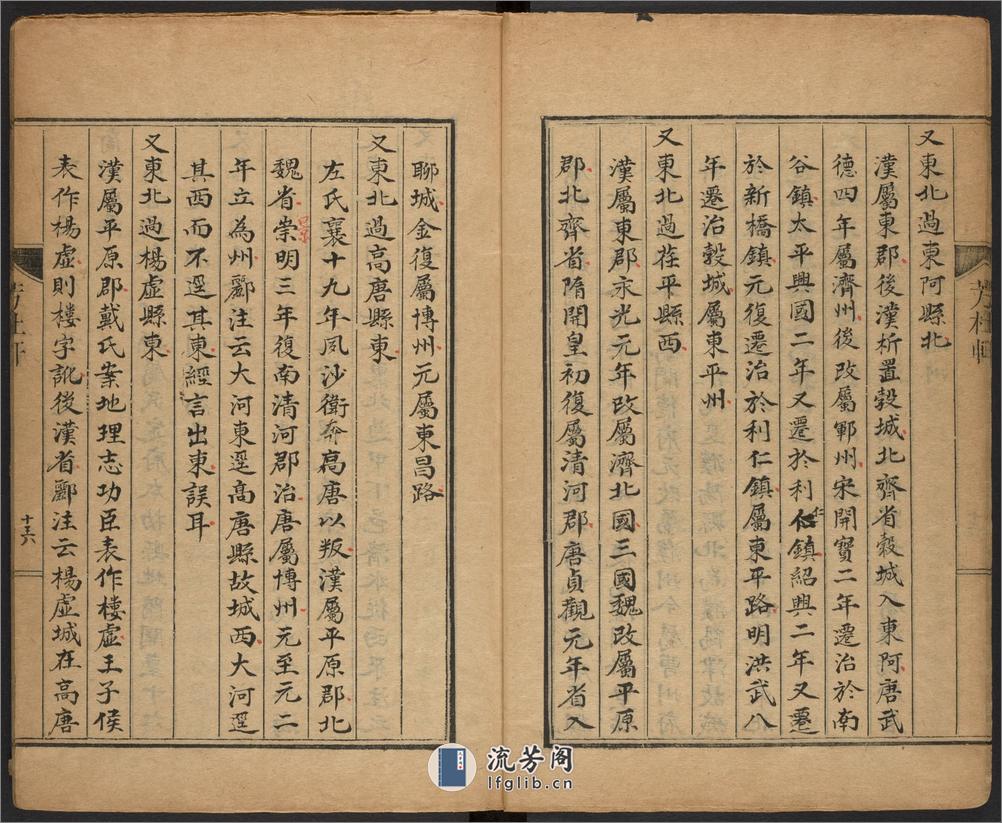 又東北過東阿縣北
漢屬東郡後漢析置穀城北齊省穀城入東阿唐武
德四年屬濟州後改屬鄆州宋開寶二年遷治於南
谷鎮太平興國二年又遷於利仁鎮紹興二年又遷
於新橋鎮元復遷治於利仁鎮屬東平路明洪武八
年遷治穀城屬東平州
又東北過茌平縣西
漢屬東郡永光元年改屬濟北國三國魏改屬平原
郡北齊省隋開皇初復屬清河郡唐貞觀元年省入
聊城金復屬博州元屬東昌路
又東北過高唐縣東
左氏襄十九年夙沙衛奔高唐以叛漢屬平原郡北
魏省崇明三年復南清河郡治唐屬博州元至元二
景
年立為州酈注云大河東逕高唐縣故城西大河逕
其西而不逕其東經言出東誤耳
又東北過楊虛縣東
漢屬平原郡戴氏案地理志功臣表作樓虛王子侯
表作楊虛則樓字訛後漢省酈注云楊虛城在高唐
十六
流芳阁
lfglib.cn